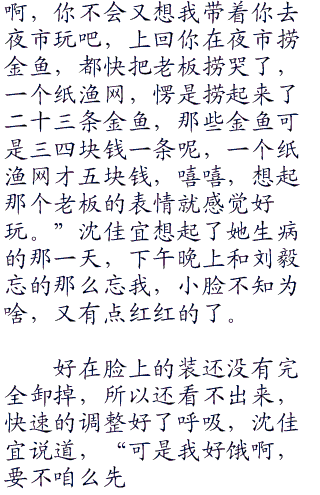 啊，你不会又想我带着你去
夜市玩吧，上回你在夜市捞
金鱼，都快把老板捞哭了，
一个纸渔网，愣是捞起来了
二十三条金鱼，那些金鱼可
是三四块钱一条呢，一个纸
渔网才五块钱，嘻嘻，想起
那个老板的表情就感觉好
玩。”沈佳宜想起了她生病
的那一天，下午晚上和刘毅
忘的那么忘我，小脸不知为
啥，又有点红红的了。
好在脸上的装还没有完
全卸掉，所以还看不出来，
快速的调整好了呼吸，沈佳
宜说道，“可是我好饿啊，
要不咱么先